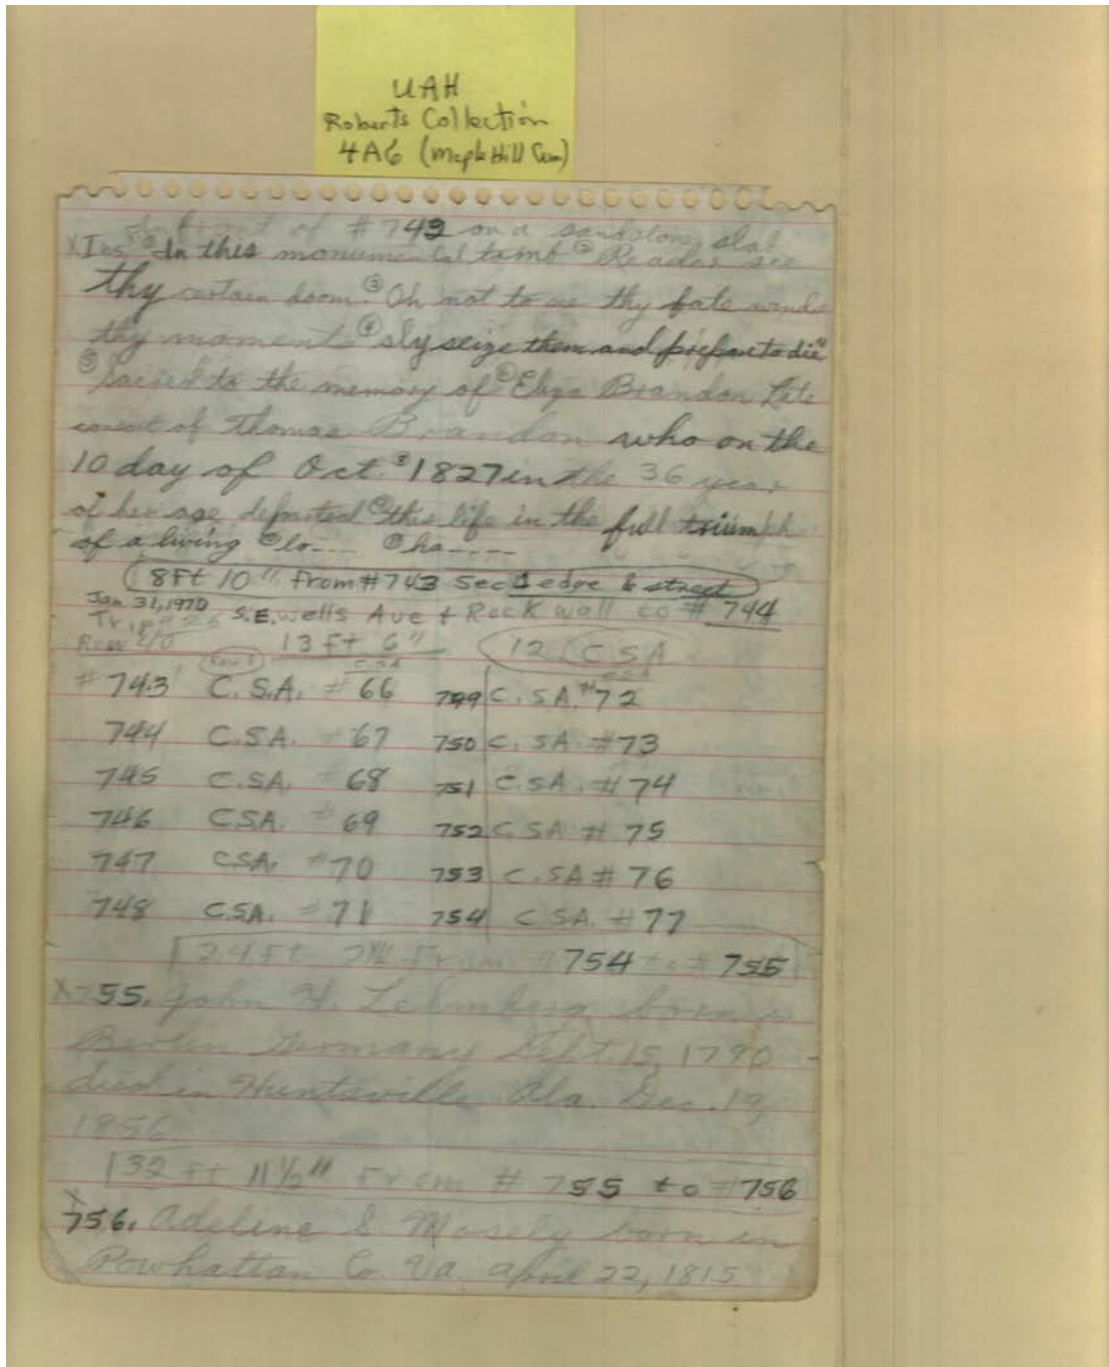 UAH
Roberts Collection
4A6 (Maple Hill Cem)
front of #742 on a sandstone slab
X Ins. ① In this monumental tomb ② Reader see
thy certain doom. ③ Oh not to see thy fate
thy moment ④ sly seize them and prepare to die"
⑤ Sacred to the memory of ⑥ Eliza Brandon Late
consort of Thomas Brandon who on the
10 day of Oct. ⑧ 1827 in the 36 year
of her age departed this life in the full triumph
of a living lo---- ha-----
8Ft 10" From #743 Sec 1 edge & street
Jan 31, 1970 S.E. wells Ave & Rock wall to # 744
Trip #26
Row 13 ft 6" 12 CSA
Row C.S.A
#743 C.S.A. #66 749 C.S.A. #72
744 C.S.A. #67 750 C.S.A. #73
745 C.S.A. 68 751 C.S.A. #74
746 CSA. #69 752 C.SA # 75
747 CSA. #70 753 C.SA # 76
748 CSA. #71 754 C.SA. #77
24Ft 2" From #754 to #755
X755. John H. Lehmberg born in
Berlin Germany Sept. 15, 1790
died in Huntsville Ala. Dec. 19,
1856
32 Ft 11 1/2" From # 755 to #756
X
756. Adeline S Mosely born in
Powhattan Co. Va. april 22, 1815